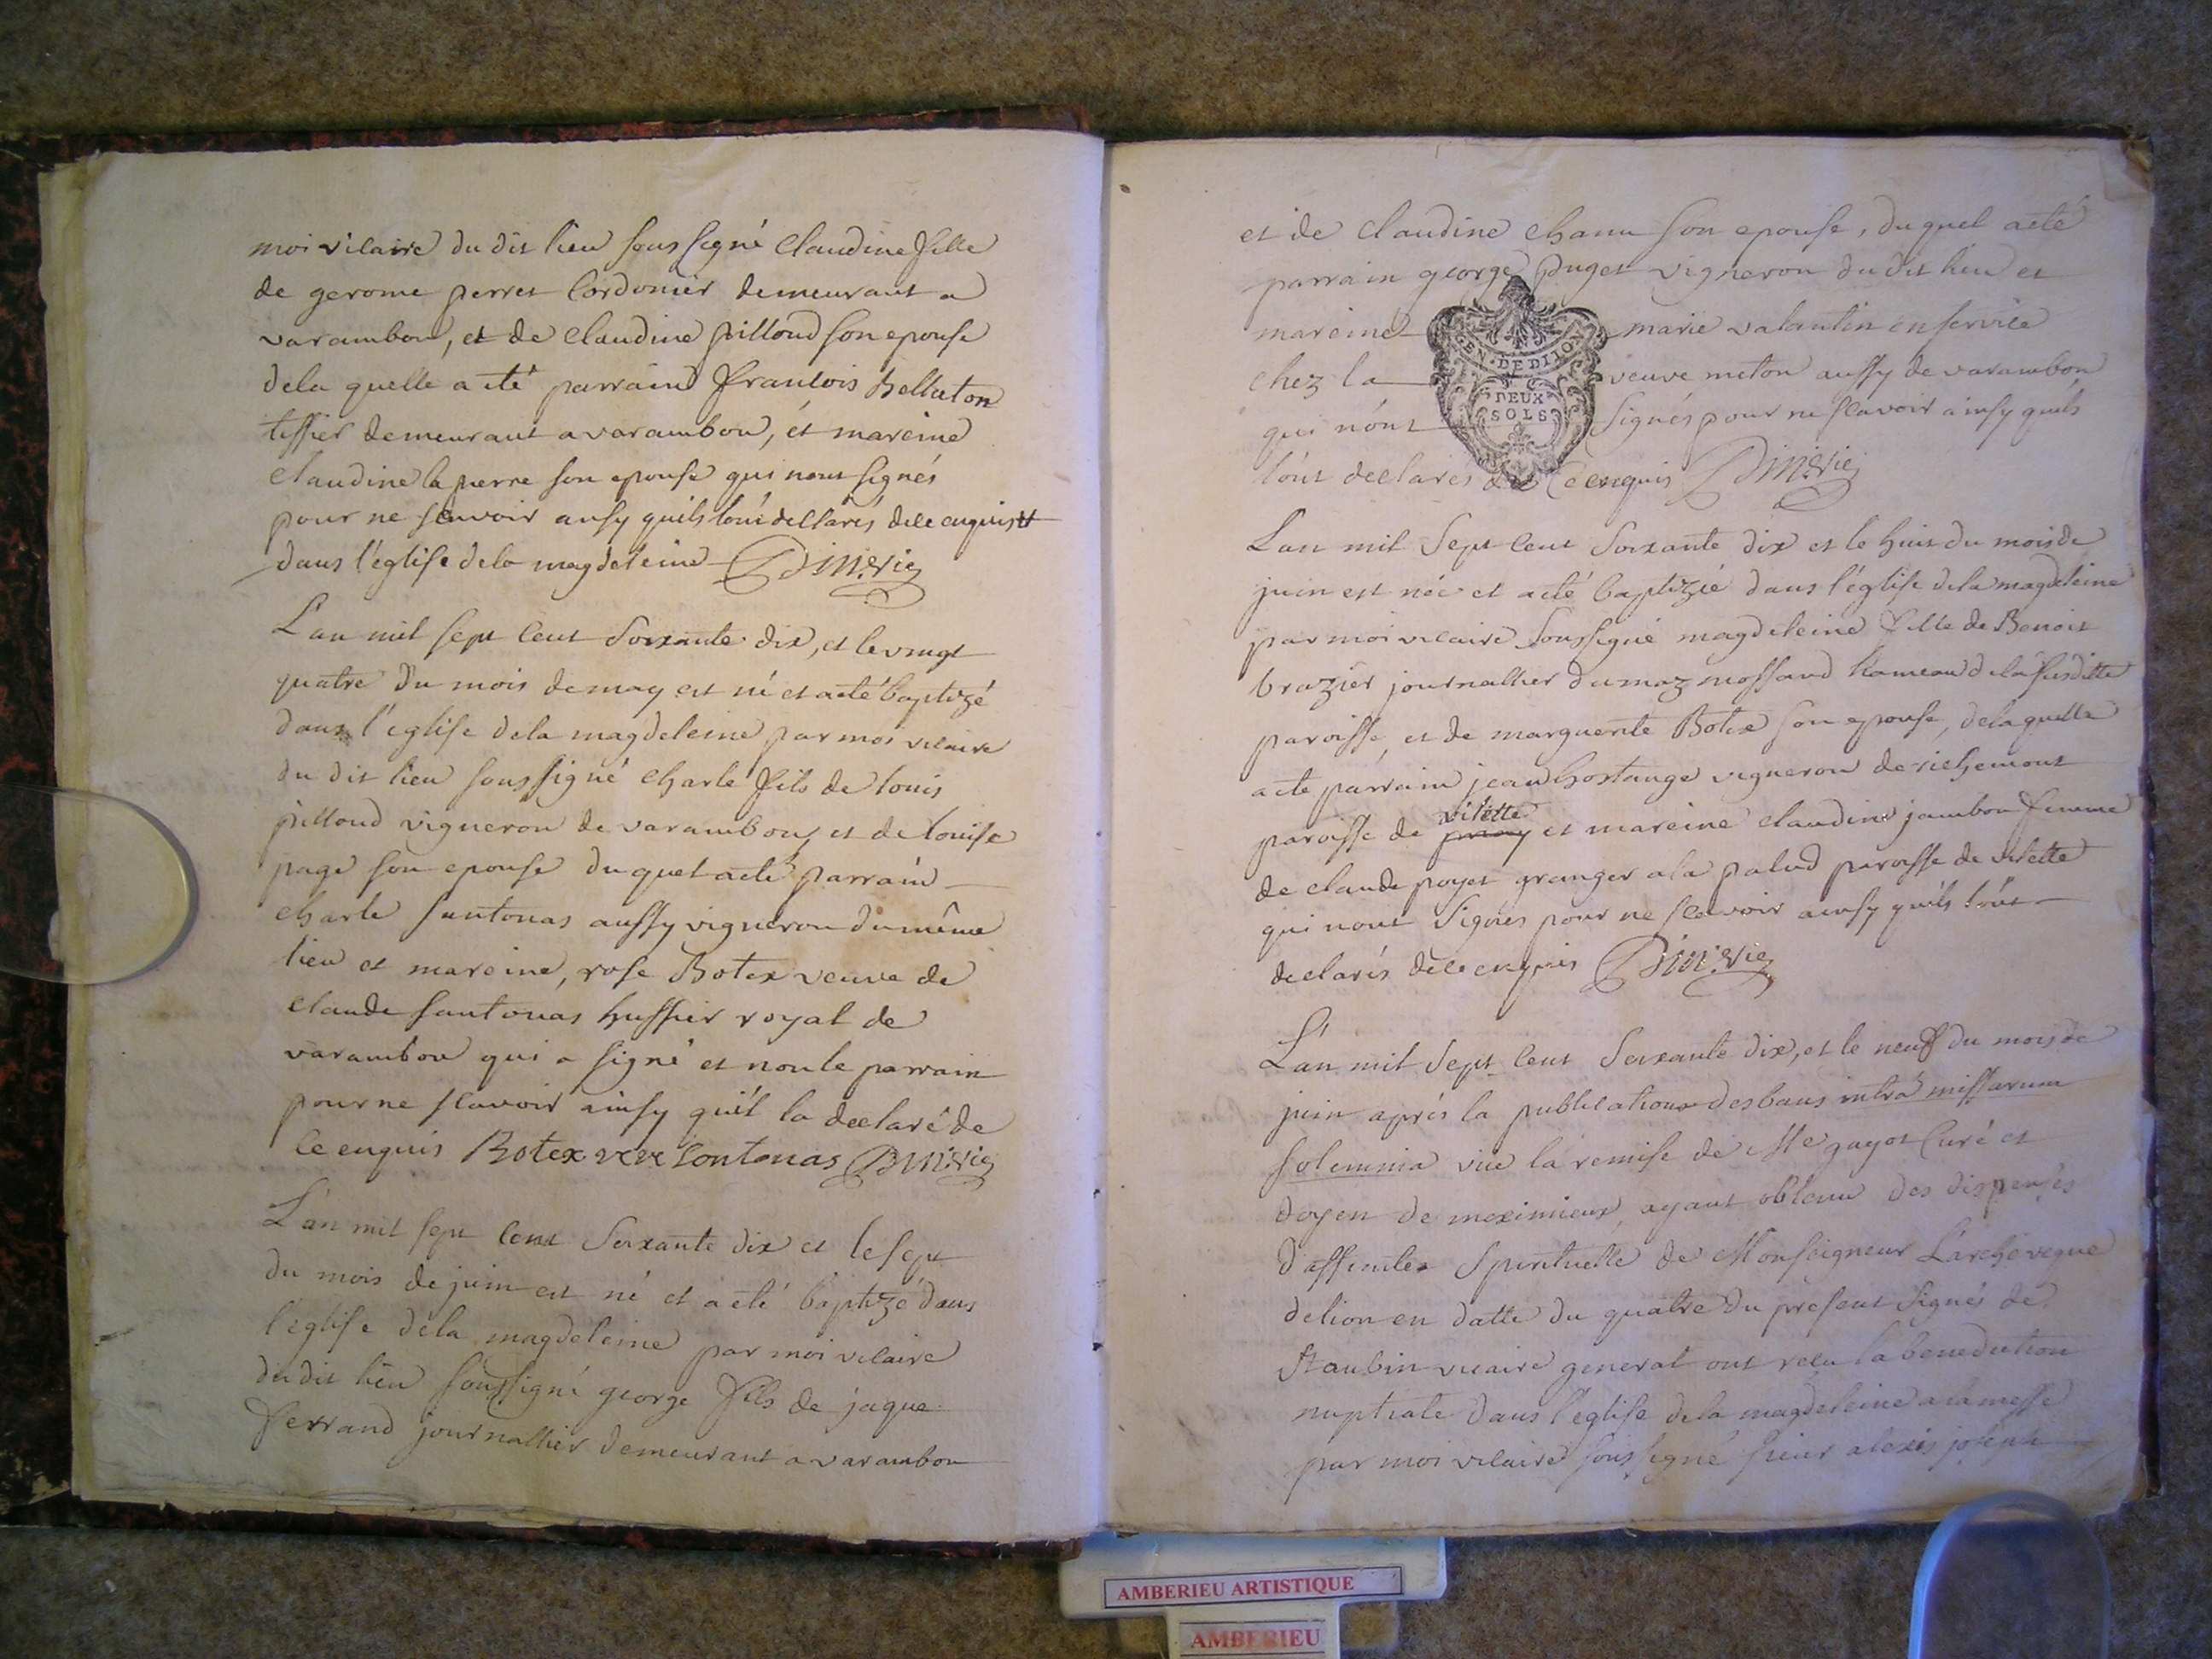 moi vicaire du dit lieu sous signé Claudine fille
de gerome perret Cordonier demeurant a
varambon, et de Claudine pilloud son epouse
dela quelle a eté parrain francois Bellaton
tissier demeurant a varambon, et mareine
Claudine la pierre son epouse qui nont signés
pour ne scavoir ainsy quils lont dellarés dece enquis
dans l'église dela magdeleine
L'an mil sept cent Soixante dix, et le vingt
quatre du mois de may est né et a eté baptizé
dans l'eglise dela magdeleine par moi vicaire
du dit lieu soussigné charle fils de louis
pilloud vigneron de varambon, et de louise
page son epouse du quel a eté parrain
charle santonas aussy vigneron du même
lieu et mareine, rose Botex veuve de
claude santonas hussier royal de
varambon qui a signé et non le parrain
pour ne scavoir ainsy quil la declaré de
ce enquis Botex veve Sontonas
L'an mil sept cent Soixante dix et le sept
du mois de juin est né et a eté baptizé dans
l'église dela magdeleine par moi vicaire
du dit lieu soussigné george fils de jaque
ferrand journallier demeurant a varambon
et de claudine chanu son epouse, du quel a eté
parrain george puget vigneron du dit lieu et
mareine marie valantin en service
chez la veuve miton aussy de varambon
qui n'ont signés pour ne scavoir ainsy quils
l'ont declarés de ce enquis
GEN · DE DIJON
DEUX
SOLS
L'an mil Sept cent Soixante dix et le huit du mois de
juin est née et a eté baptizée dans l'église dela magdeleine
par moi vicaire Soussigné magdeleine fille de Benoit
brazier journallier du maz mossand hameaud dela susditte
paroisse, et de marguerite Botex son epouse, dela quelle
a eté parrain jean hostange vigneron de richemont
vilette
paroisse de et mareine claudine jambon femme
de claude poyet granger a la palud paroisse de vilette
qui nont signés pour ne scavoir ainsy quils l'ont
declarés de ce enquis
L'an mil Sept cent Soixante dix, et le neuf du mois de
juin après la publication des bans intrà missarum
solemnia vüe la remise de Me guyot Curé et
doyen de meximieux, ayant obtenu des dispenses
d'affinité Spirituelle de Monseigneur L'archeveque
de lion en datte du quatre du present signés de
St aubin vicaire general ont recu la benediction
nuptiale dans l'eglise dela magdeleine a la messe
par moi vicaire soussigné sieur alexis joseph
AMBERIEU ARTISTIQUE
AMBERIEU